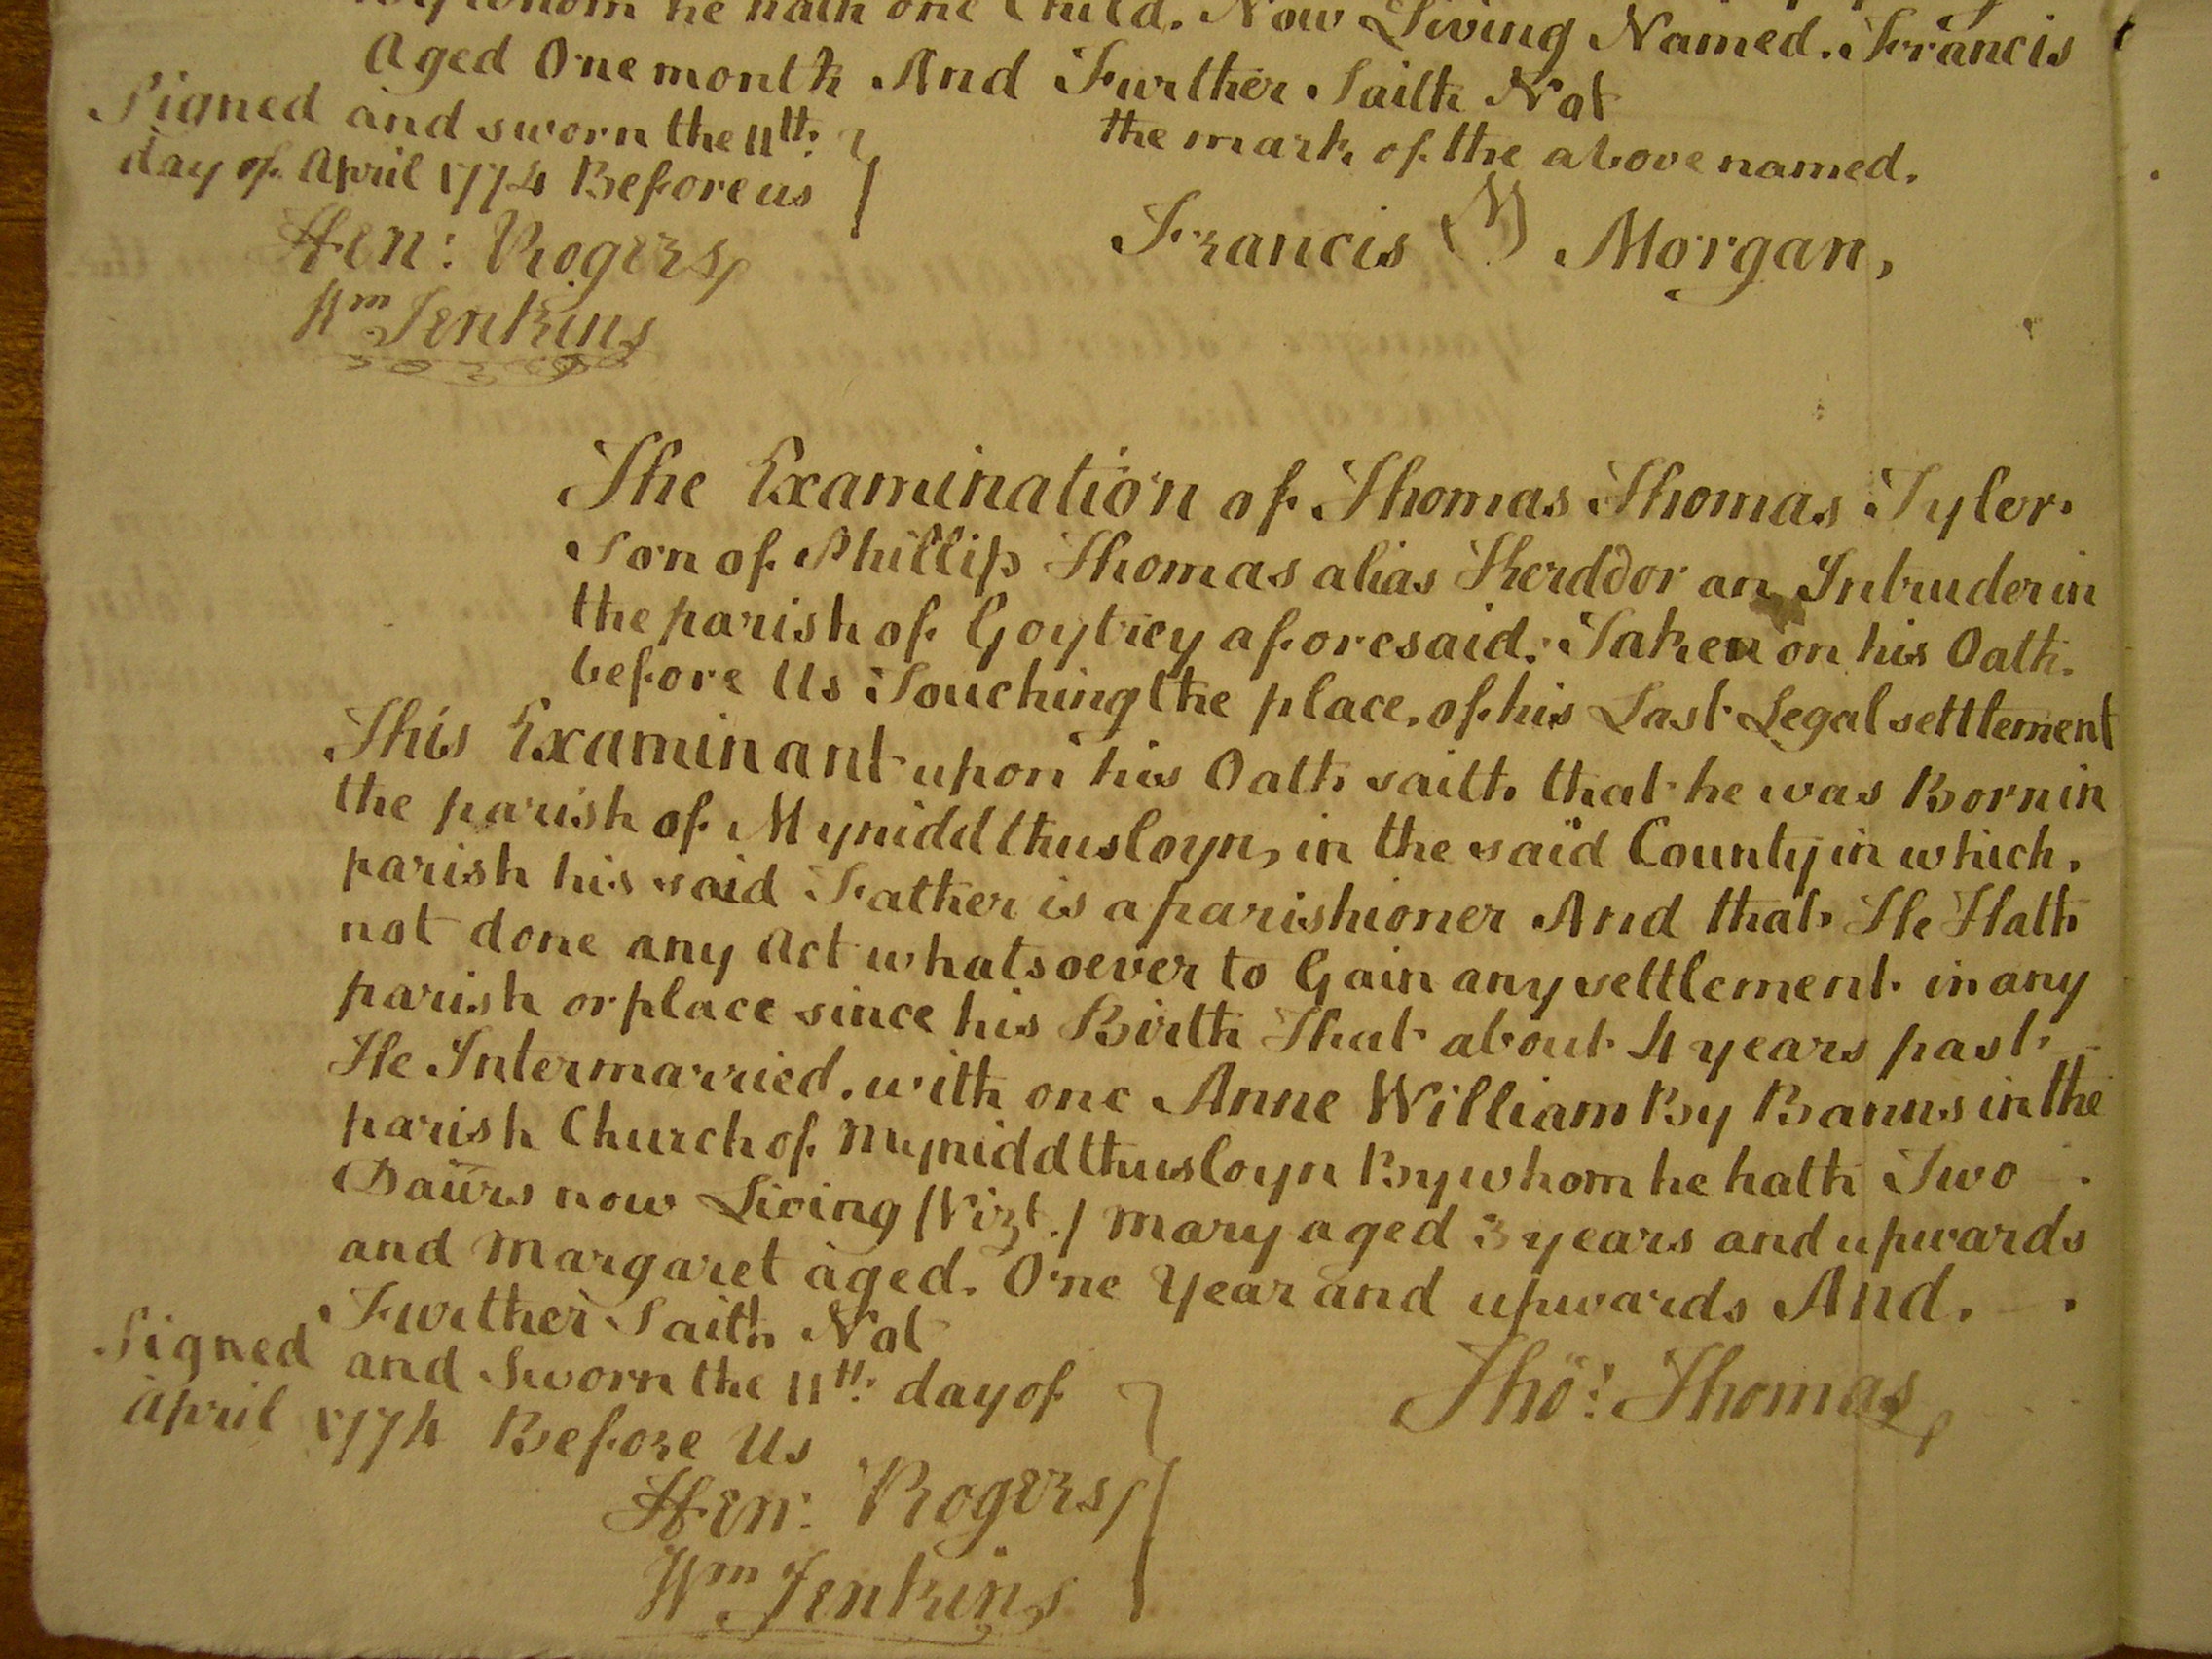 by whom he hath one Child. Now Living Named. Francis
Aged One month And Further Saith Not
Signed and sworn the 11th.
day of April 1774 Before us
the mark of the above named.
Francis M Morgan,
Hen: Rogers
Wm Jenkins
The Examination of Thomas Thomas Tyler.
Son of Phillip Thomas alias Therddor an Intruder in
the parish of Goytrey aforesaid. Taken on his Oath.
before Us Touching the place. of his Last Legal settlement
This Examinant upon his Oath saith. that he was Born in
the parish of Myniddthusloyn, in the said County in which.
parish his said Father is a parishioner And that He Hath
not done any Act whatsoever to Gain any settlement in any
parish or place since his Birth That about 4 years past
He Intermarried. with one Anne William By Banns in the
parish Church of Myniddthusloyn By whom he hath Two
Daurs now Living /Vizt./ Mary aged 3 years and upwards
and Margaret aged. One Year and upwards And.
Further Saith Not
Signed and Sworn the 11th: day of
April 1774 Before Us
Tho:s Thomas
Hen: Rogers
Wm Jenkins